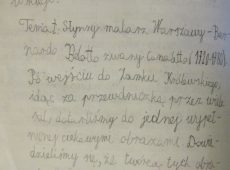 Temat: Słynny malarz Warszawy - Ber-
nardo Belotto zwany Canaletto (1721-1780).
Po wejściu do Zamku Królewskiego,
idąc za przewodniczką przez wiele
sal dotarliśmy do jednej wypeł-
nionej ciekawymi obrazami. Dowie-
dzieliśmy się, że twórcą tych obra-